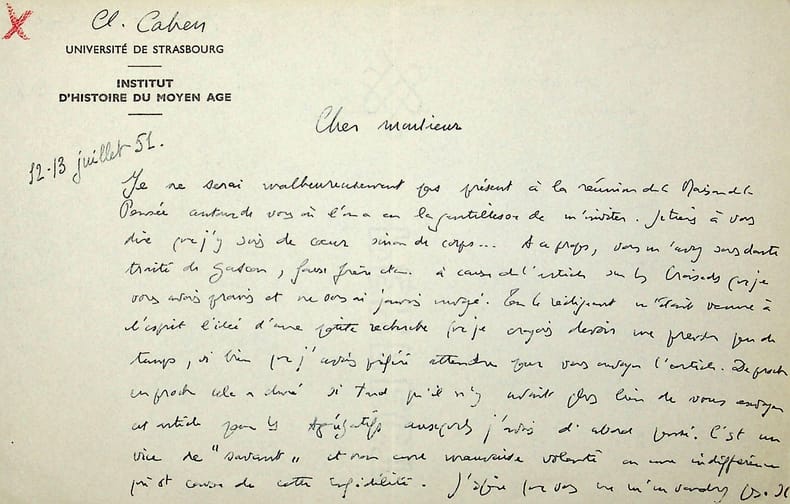 Cl. Cahen
UNIVERSITÉ DE STRASBOURG
INSTITUT
D'HISTOIRE DU MOYEN AGE
Cher monsieur
12-13 juillet 51.
Je ne serai malheureusement pas présent à la réunion de la Maison de la
Pensée autour de vous où l'on a eu la gentillesse de m'inviter. Je tiens à vous
dire que j'y suis de cœur sinon de corps... A ce propos, vous m'avez sans doute
traité de Gascon, faux frère etc. à cause de l'article sur les Croisades que je
vous avais promis et ne vous ai jamais envoyé. En le rédigeant m'était venue à
l'esprit l'idée d'une petite recherche que je croyais devoir me prendre peu de
temps, si bien que j'avais préféré attendre pour vous envoyer l'article. De proche
en proche cela a duré si tard qu'il n'y avait plus lieu de vous envoyer
cet article pour les Agrégatifs auxquels j'avais d'abord pensé. C'est un
vice de "savant" et non une mauvaise volonté ou une indifférence
qui est cause de cette infidélité. J'espère que vous ne m'en voudrez pas. Je